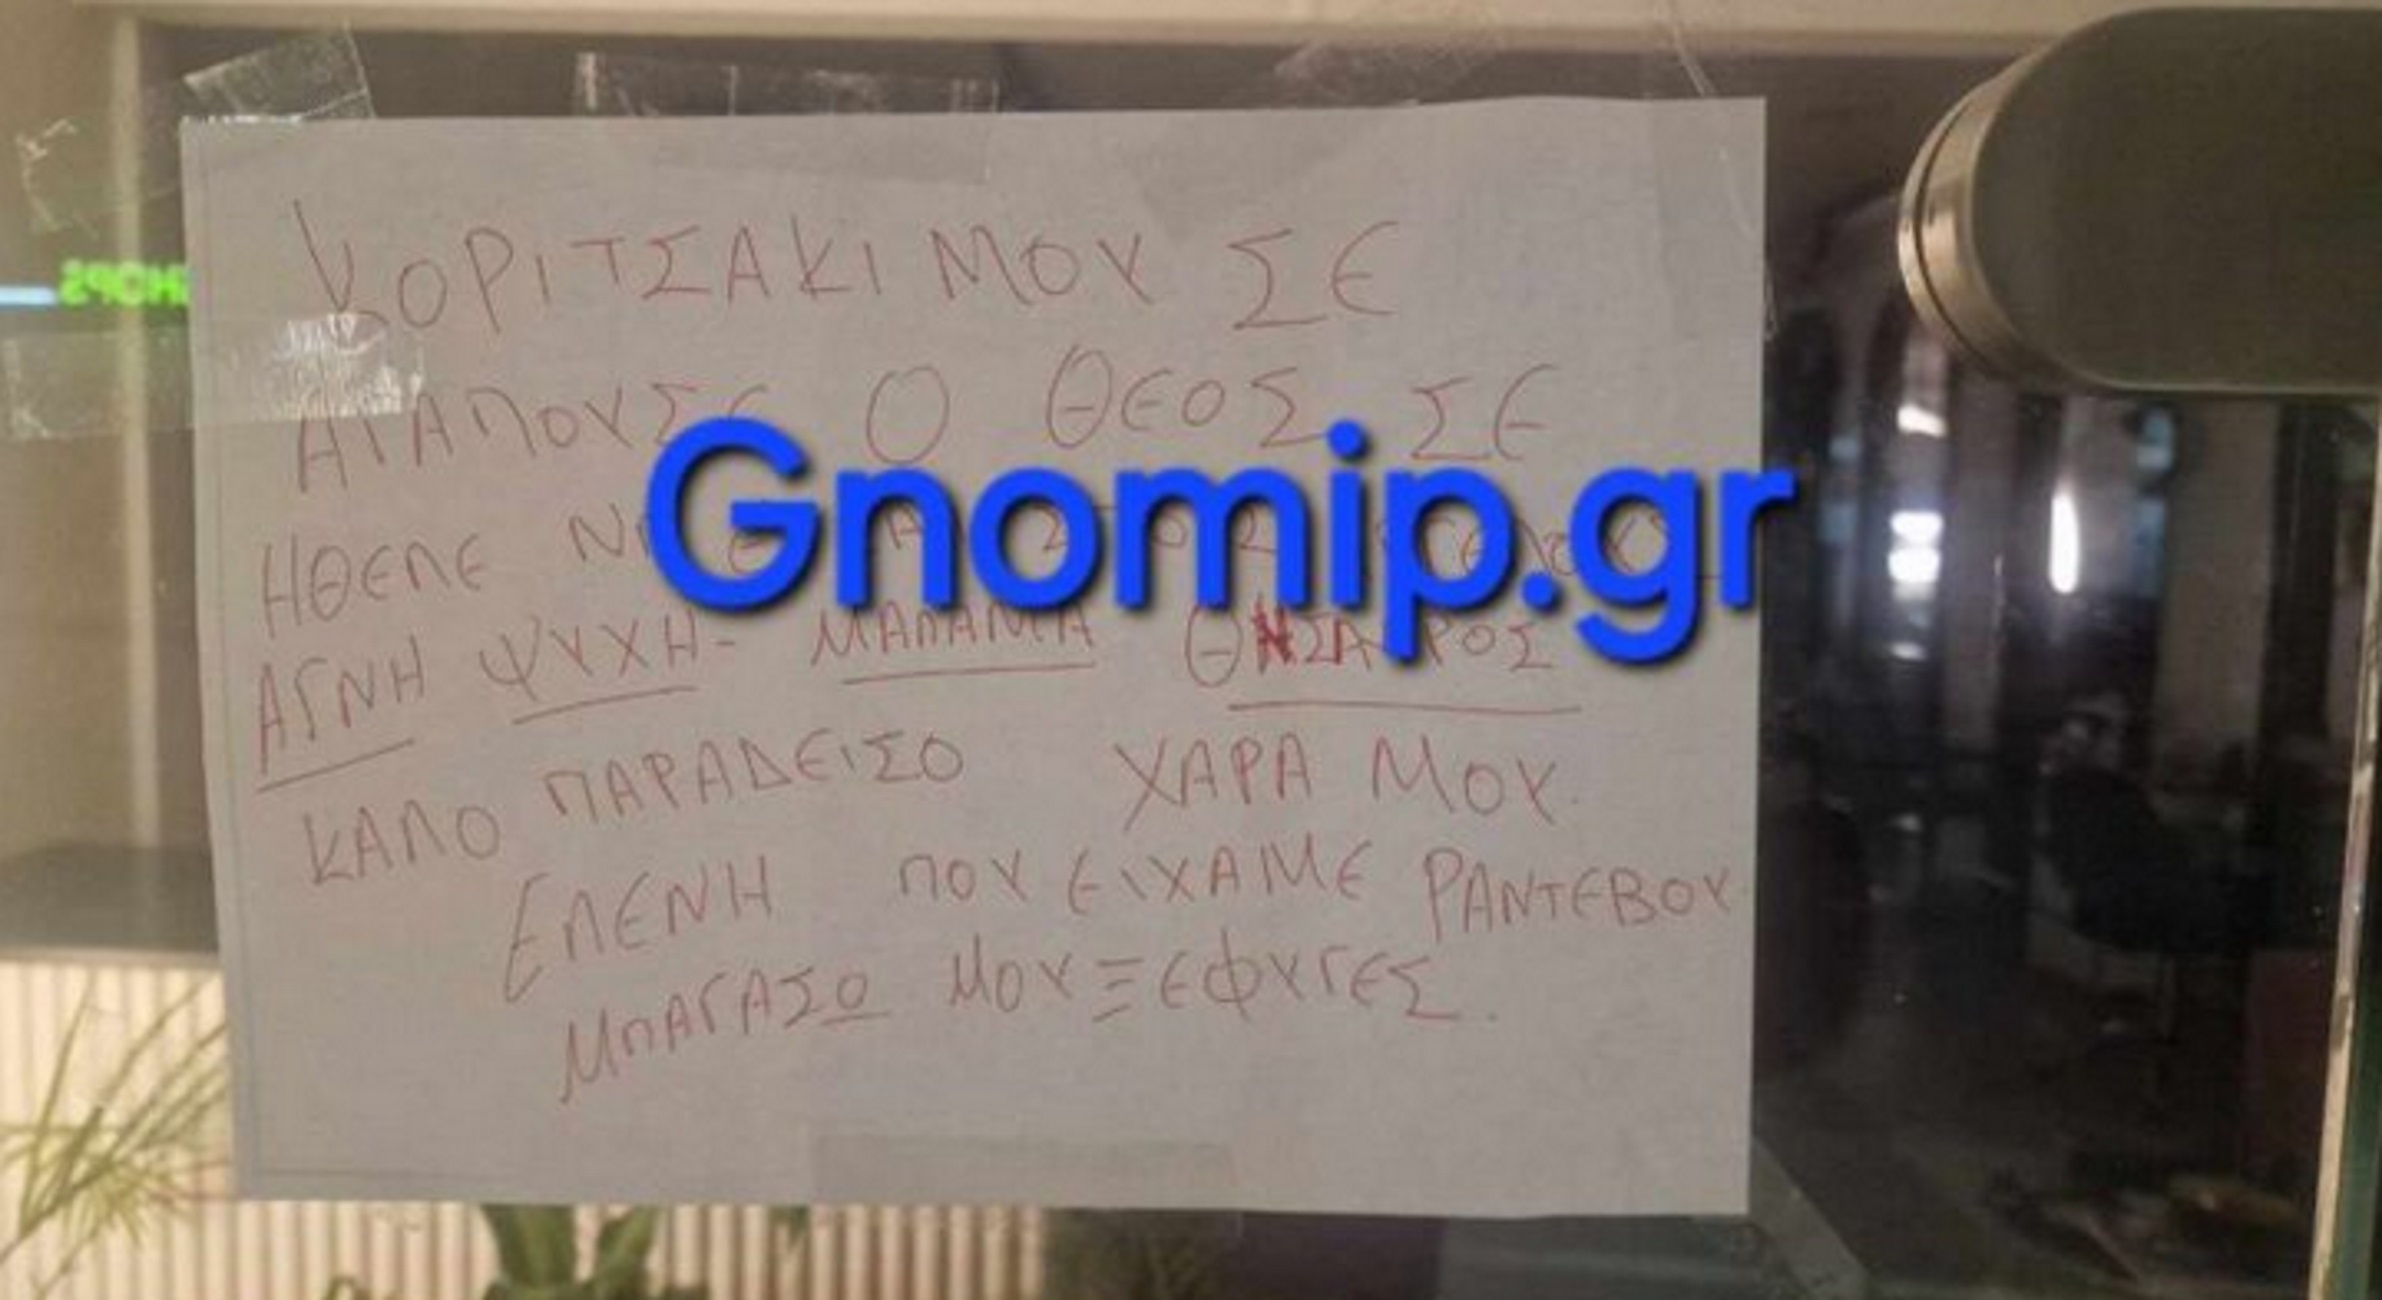 ΚΟΡΙΤΣΑΚΙ ΜΟΥ ΣΕ
ΑΓΑΠΟΥΣΕ Ο ΘΕΟΣ ΣΕ
ΗΘΕΛΕ
Gnomip.gr
ΑΓΝΗ ΨΥΧΗ- ΜΑΛΑΜΑ ΘΗΣΑΥΡΟΣ
ΚΑΛΟ ΠΑΡΑΔΕΙΣΟ ΧΑΡΑ ΜΟΥ.
ΕΛΕΝΗ ΠΟΥ ΕΙΧΑΜΕ ΡΑΝΤΕΒΟΥ
ΜΠΑΓΑΣΩ ΜΟΥ ΞΕΦΥΓΕΣ.